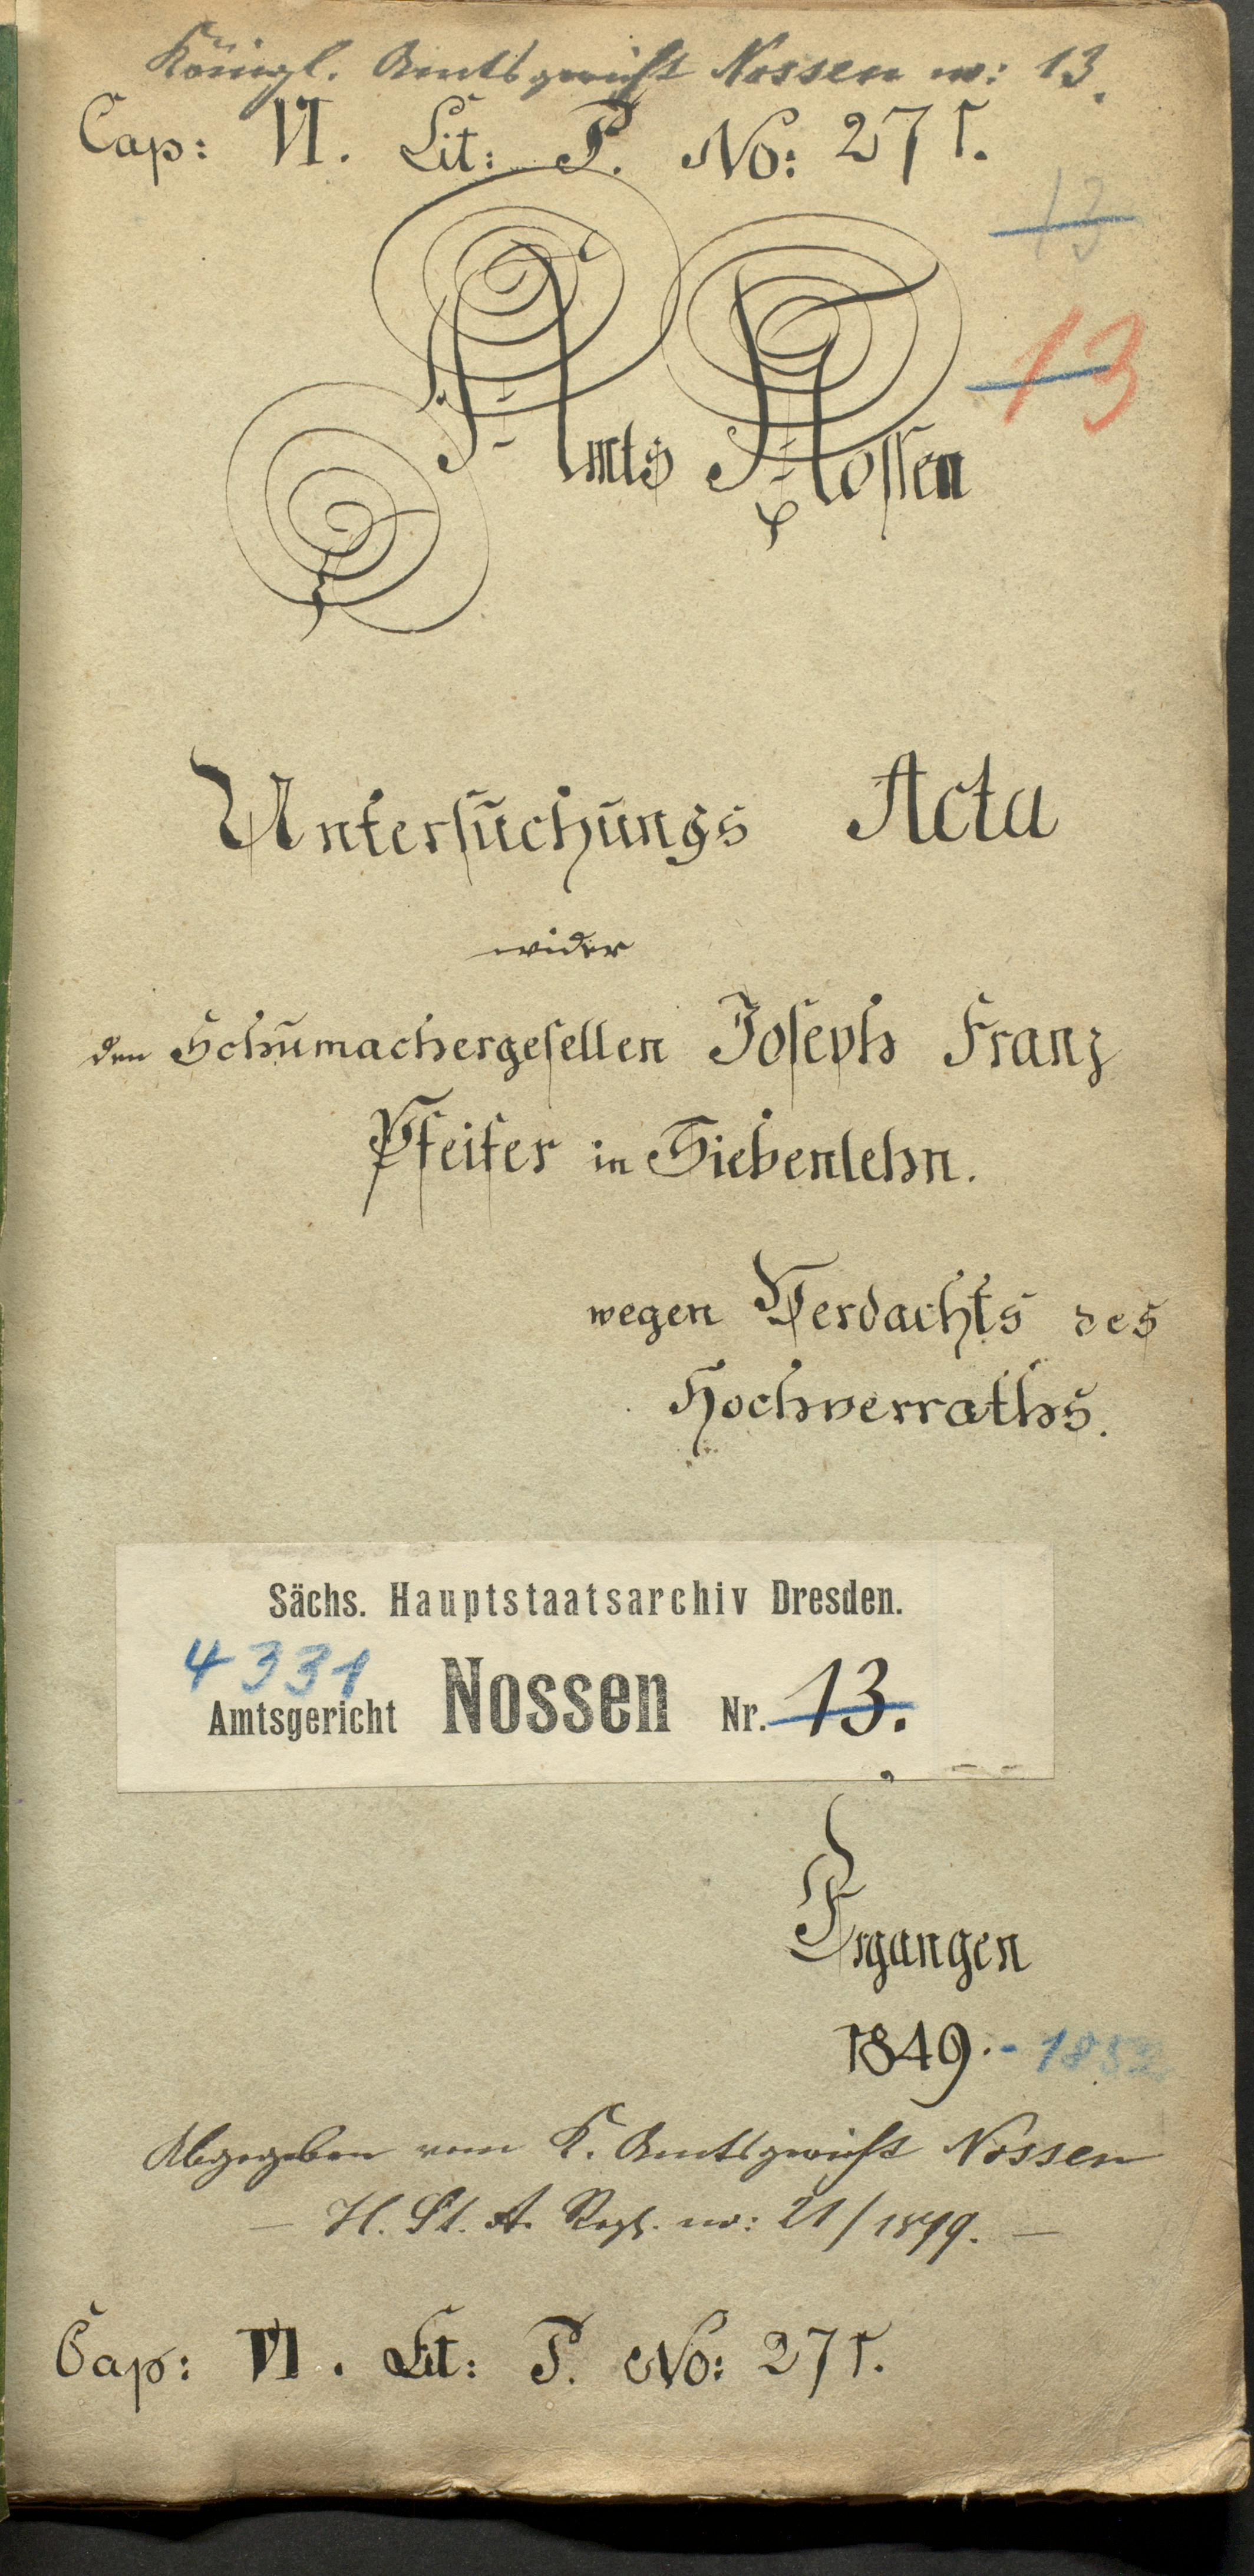 Königl. Amtsgericht Nossen no: 13.
Cap: VI. Lit: P. No: 271.
13
13
Amts Nossen
Untersuchungs Acta
wider
den Schumachergesellen Joseph Franz
Pfeifer in Siebenlehn.
wegen Verdachts des
Hochverraths.
Sächs. Hauptstaatsarchiv Dresden.
4331
Amtsgericht Nossen Nr. 13.
Ergangen
1849. - 1852
Abgegeben vom K. Amtsgericht Nossen
— H. St. A. Regh. no: 21/1899. —
Cap: VI. Lit: P. No: 271.